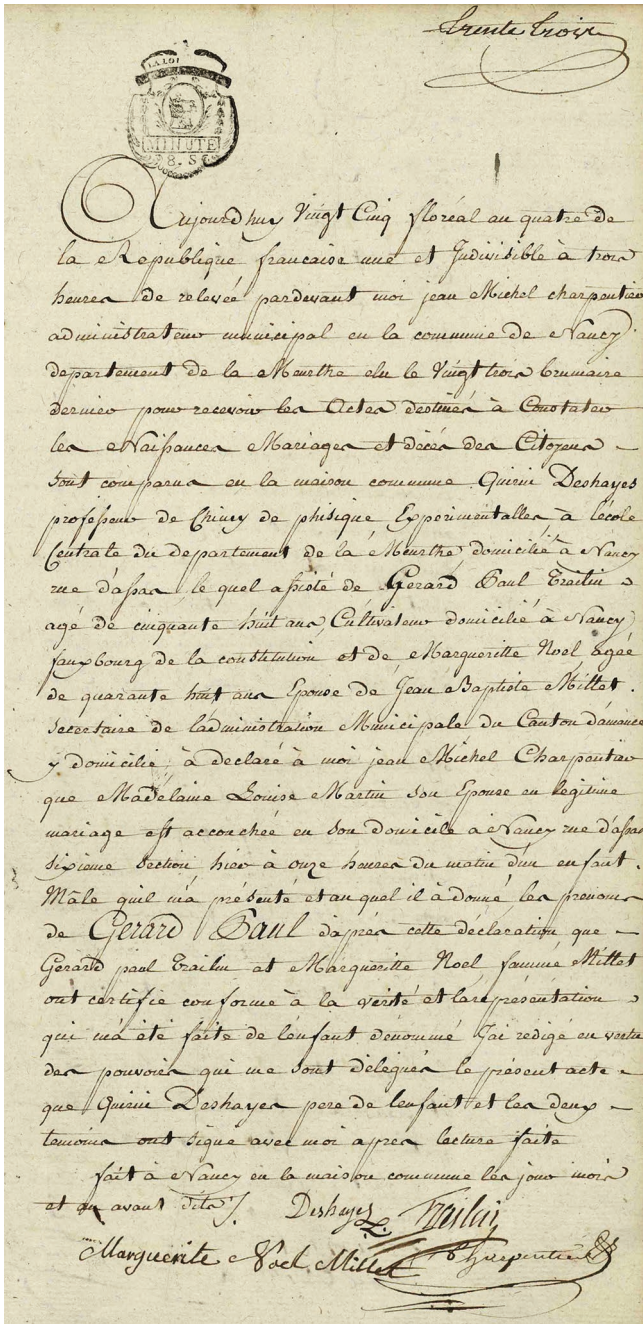 trente trois
LA LOI
MINUTE
8. S
Aujourd'huy Vingt Cinq floréal an quatre de
la Republique francaise une et Indivisible à trois
heures de relevée pardevant moi jean Michel charpentier
administrateur municipal en la commune de Nancy
departement de la Meurthe elu le Vingt trois brumaire
dernier pour recevoir les Actes destinés à Constater
les Naissances Mariages et décés des Citoyens -
sont comparus en la maison commune Quirin Deshayes
professeur de Chimy de phisique Experimentalles, à lécole
Centrale du departement de la Meurthe, domicilié à Nancy
rue d'assas, le quel assisté de Gerard Paul Trailin
agé de cinquante huit ans, Cultivateur domicilié à Nancy
fauxbourg de la constitution et de Margueritte Noel agée
de quarante huit ans Epouse de Jean Baptiste Millet.
secretaire de ladministration Municipale du Canton damance
y domicilié, à declaré à moi jean Michel Charpentier
que Madelaine Louise Martin son Epouse en legitime
mariage est accouchée en son domicile à Nancy rue d'assas
sixieme section hier à onze heures du matin d'un enfant.
Mâle quil m'a présenté et au quel il à donné les prenoms
de Gerard Paul d'après cette déclaration que -
Gerard paul Trailin et Margueritte Noel, famme Millet
ont certifié conforme à la vérité et la représentation
qui m'a été faite de l'enfant dénommé J'ai redigé en vertu
des pouvoirs qui me sont délégués le présent acte -
que Quirin Deshayes pere de l'enfant et les deux -
temoins ont signé avec moi apres lecture faite
fait à Nancy en la maison commune les jour mois
et an avant dits /. Deshayes Trailin
Marguerite Noel Millet Charpentier